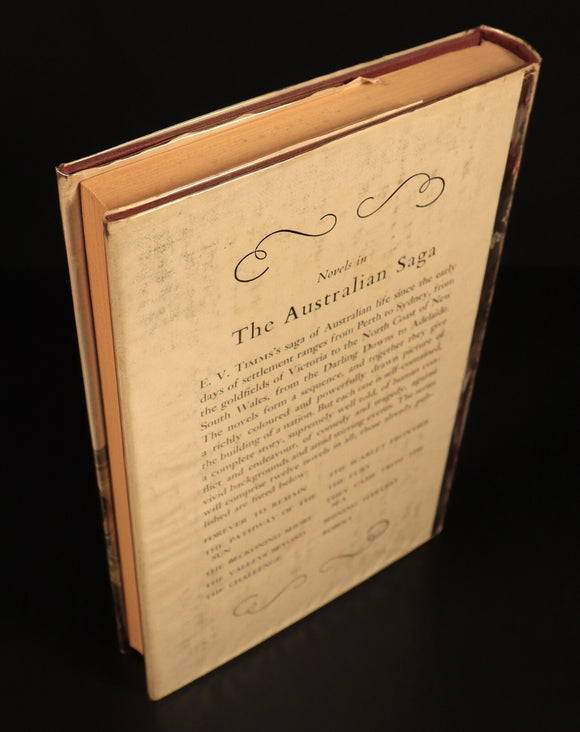 Novels in
The Australian Saga
E. V. TIMMS's saga of Australian life since the early
days of settlement ranges from Perth to Sydney, from
the goldfields of Victoria to the North Coast of New
South Wales, from the Darling Downs to Adelaide.
The novels form a sequence, and together they give
a richly coloured and powerfully drawn picture of
the building of a nation. But each one is self-contained,
a complete story, supremely well told, of human con-
flict and endeavour, of comedy and tragedy, against
vivid backgrounds and amid stirring events. The series
will comprise twelve novels in all; those already pub-
lished are listed below:
FOREVER TO REMAIN
THE PATHWAY OF THE
SUN
THE BECKONING SHORE
THE VALLEYS BEYOND
THE CHALLENGE
THE SCARLET FRONTIER
THE FURY
THEY CAME FROM THE
SEA
SHINING HARVEST
ROBINA